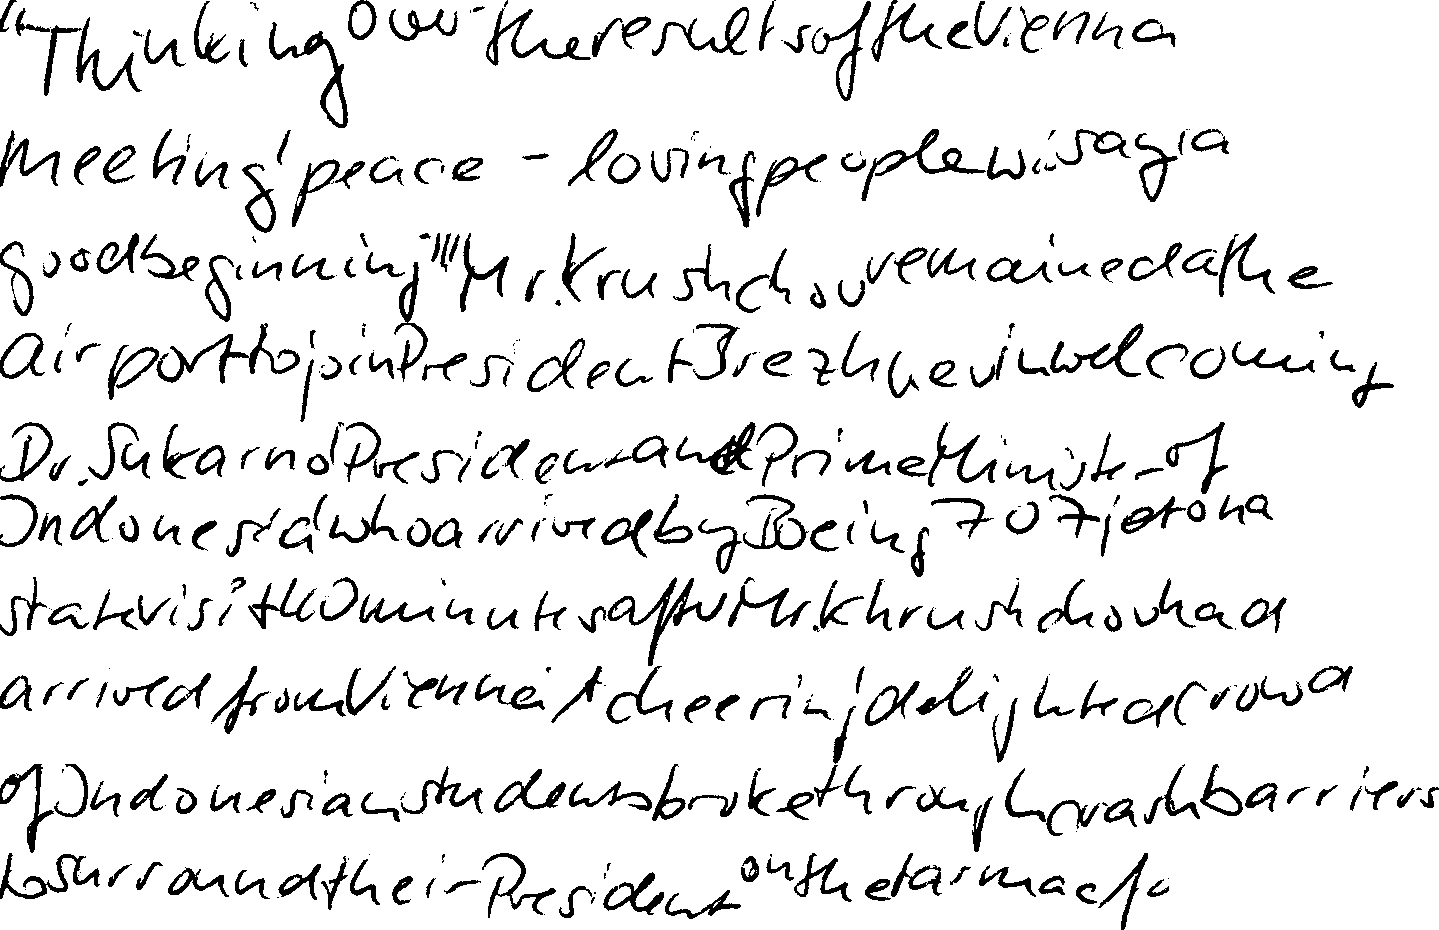 "Thinking over the results of the Vienna
meeting, peace-loving people will say: 'a
good beginning'." Mr. Krushchov remained at the
airport to join President Brezhnev in welcoming
Dr. Sukarno, President and Prime Minister of
Indonesia, who arrived by Boeing 707 jet on a
state visit 40 minutes after Mr. Khrushchov had
arrived from Vienna. A cheering, delighted crowd
of Indonesian students broke through crash barriers
to surround their President on the tarmac